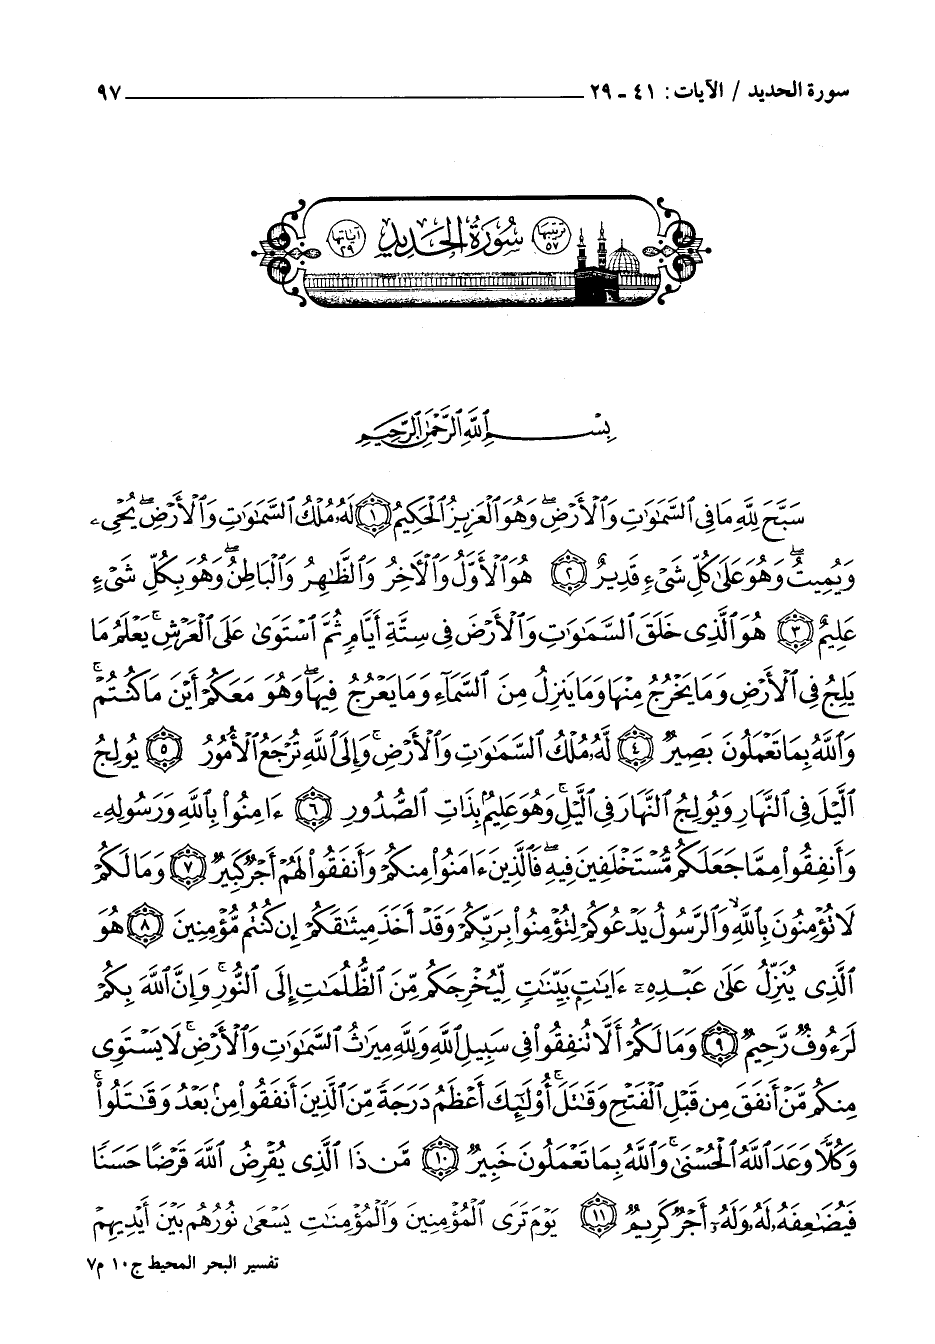 سورة الحديد / الآيات: ٤١ - ٢٩ ٩٧
ترتيبها ٥٧ سُورَةُ الحَدِيدِ آياتها ٢٩
بِسْمِ ٱللَّهِ ٱلرَّحْمَٰنِ ٱلرَّحِيمِ
سَبَّحَ لِلَّهِ مَا فِى ٱلسَّمَٰوَٰتِ وَٱلْأَرْضِ ۖ وَهُوَ ٱلْعَزِيزُ ٱلْحَكِيمُ ١ لَهُۥ مُلْكُ ٱلسَّمَٰوَٰتِ وَٱلْأَرْضِ ۖ يُحْىِۦ
وَيُمِيتُ ۖ وَهُوَ عَلَىٰ كُلِّ شَىْءٍ قَدِيرٌ ٢ هُوَ ٱلْأَوَّلُ وَٱلْءَاخِرُ وَٱلظَّٰهِرُ وَٱلْبَاطِنُ ۖ وَهُوَ بِكُلِّ شَىْءٍ
عَلِيمٌ ٣ هُوَ ٱلَّذِى خَلَقَ ٱلسَّمَٰوَٰتِ وَٱلْأَرْضَ فِى سِتَّةِ أَيَّامٍ ثُمَّ ٱسْتَوَىٰ عَلَى ٱلْعَرْشِ ۚ يَعْلَمُ مَا
يَلِجُ فِى ٱلْأَرْضِ وَمَا يَخْرُجُ مِنْهَا وَمَا يَنزِلُ مِنَ ٱلسَّمَآءِ وَمَا يَعْرُجُ فِيهَا ۖ وَهُوَ مَعَكُمْ أَيْنَ مَا كُنتُمْ ۚ
وَٱللَّهُ بِمَا تَعْمَلُونَ بَصِيرٌ ٤ لَّهُۥ مُلْكُ ٱلسَّمَٰوَٰتِ وَٱلْأَرْضِ ۚ وَإِلَى ٱللَّهِ تُرْجَعُ ٱلْأُمُورُ ٥ يُولِجُ
ٱلَّيْلَ فِى ٱلنَّهَارِ وَيُولِجُ ٱلنَّهَارَ فِى ٱلَّيْلِ ۚ وَهُوَ عَلِيمٌۢ بِذَاتِ ٱلصُّدُورِ ٦ ءَامِنُوا۟ بِٱللَّهِ وَرَسُولِهِۦ
وَأَنفِقُوا۟ مِمَّا جَعَلَكُم مُّسْتَخْلَفِينَ فِيهِ ۖ فَٱلَّذِينَ ءَامَنُوا۟ مِنكُمْ وَأَنفَقُوا۟ لَهُمْ أَجْرٌ كَبِيرٌ ٧ وَمَا لَكُمْ
لَا تُؤْمِنُونَ بِٱللَّهِ ۙ وَٱلرَّسُولُ يَدْعُوكُمْ لِتُؤْمِنُوا۟ بِرَبِّكُمْ وَقَدْ أَخَذَ مِيثَٰقَكُمْ إِن كُنتُم مُّؤْمِنِينَ ٨ هُوَ
ٱلَّذِى يُنَزِّلُ عَلَىٰ عَبْدِهِۦٓ ءَايَٰتٍۭ بَيِّنَٰتٍ لِّيُخْرِجَكُم مِّنَ ٱلظُّلُمَٰتِ إِلَى ٱلنُّورِ ۚ وَإِنَّ ٱللَّهَ بِكُمْ
لَرَءُوفٌ رَّحِيمٌ ٩ وَمَا لَكُمْ أَلَّا تُنفِقُوا۟ فِى سَبِيلِ ٱللَّهِ وَلِلَّهِ مِيرَٰثُ ٱلسَّمَٰوَٰتِ وَٱلْأَرْضِ ۚ لَا يَسْتَوِى
مِنكُم مَّنْ أَنفَقَ مِن قَبْلِ ٱلْفَتْحِ وَقَٰتَلَ ۚ أُو۟لَٰٓئِكَ أَعْظَمُ دَرَجَةً مِّنَ ٱلَّذِينَ أَنفَقُوا۟ مِنۢ بَعْدُ وَقَٰتَلُوا۟ ۚ
وَكُلًّا وَعَدَ ٱللَّهُ ٱلْحُسْنَىٰ ۚ وَٱللَّهُ بِمَا تَعْمَلُونَ خَبِيرٌ ١٠ مَّن ذَا ٱلَّذِى يُقْرِضُ ٱللَّهَ قَرْضًا حَسَنًا
فَيُضَٰعِفَهُۥ لَهُۥ وَلَهُۥٓ أَجْرٌ كَرِيمٌ ١١ يَوْمَ تَرَى ٱلْمُؤْمِنِينَ وَٱلْمُؤْمِنَٰتِ يَسْعَىٰ نُورُهُم بَيْنَ أَيْدِيهِمْ
تفسير البحر المحيط ج١٠ م٧